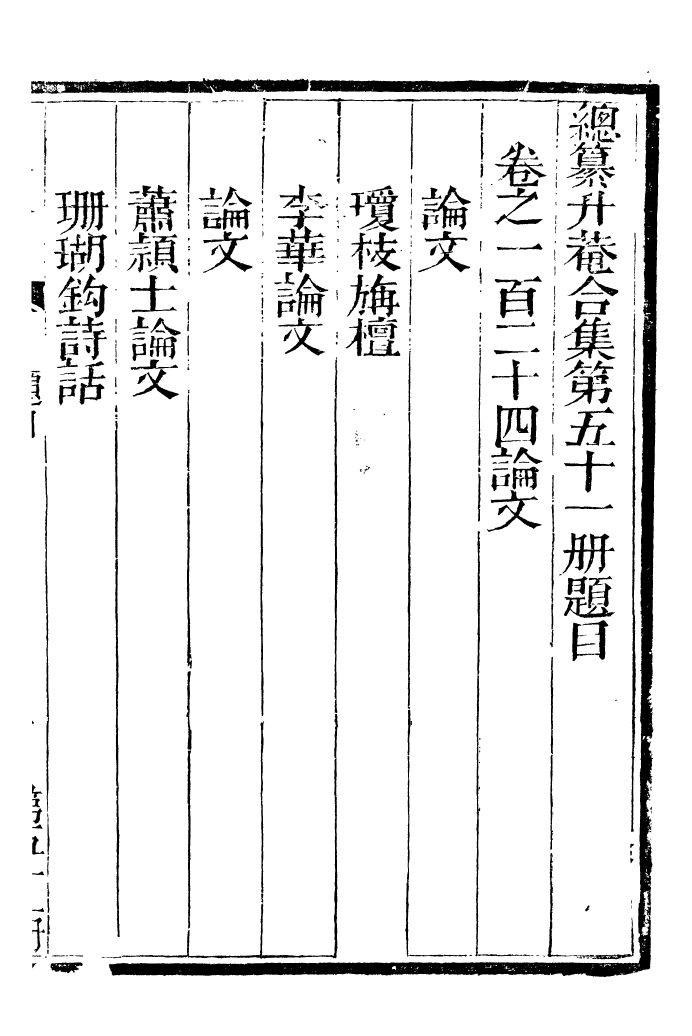 總纂升菴合集第五十一册題目
卷之一百二十四論文
論文
瓊枝旃檀
李華論文
論文
蕭穎士論文
珊瑚鈎詩話